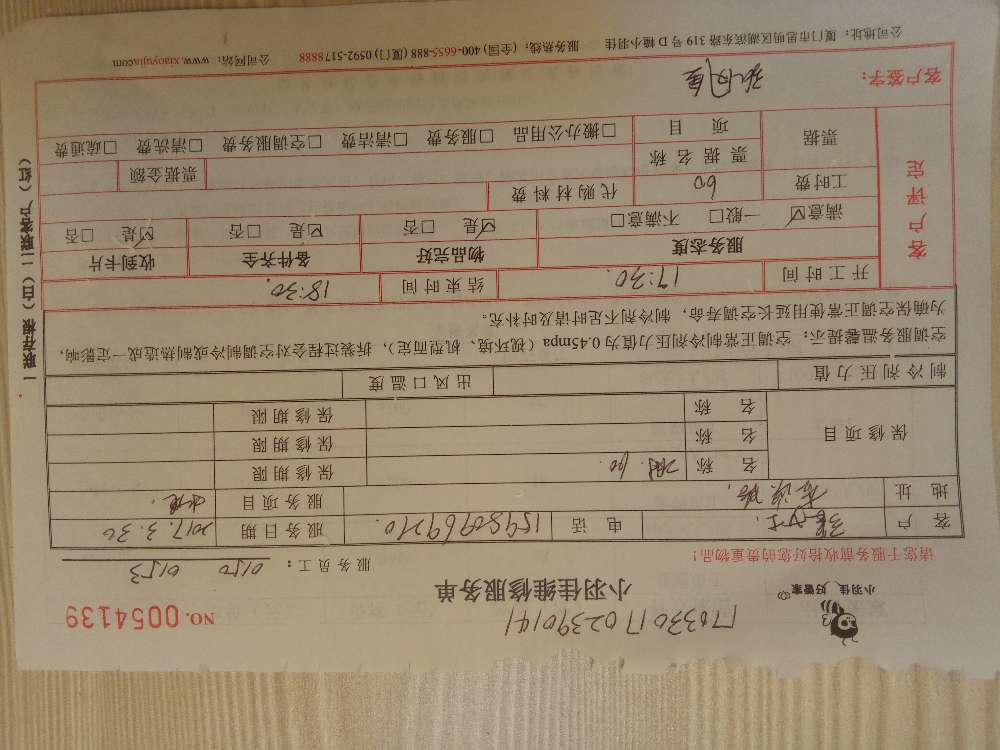 小羽佳、好管家
17033017023390141
小羽佳维修服务单
NO. 0054139
请您于服务前收拾好您的贵重物品！
服务员工： 0150 0153
客 户 电 话 15980969210. 服务日期 2017.3.30
地 址 服务项目
保修项目 名 称 60. 保修期限
名 称 保修期限
名 称 保修期限
制冷剂压力值 出风口温度
空调服务温馨提示：空调正常制冷剂压力值为0.45mpa（视环境、机型而定），拆装过程会对空调制冷或制热造成一定影响，
为确保空调正常使用延长空调寿命，制冷剂不足时请及时补充。
客户评定
开工时间 17:30. 结束时间 18:30.
服务态度 物品完好 备件齐全 收到卡片
满意☑ 一般□ 不满意□ ☑是 □否 ☑是 □否 ☑是 □否
工时费 60 代购材料费
票据 票据名称 票据金额
项 目 □搬办公用品 □服务费 □清洁费 □空调服务费 □清洗费 □疏通费
客户签字：
公司地址：厦门市思明区湖滨东路319号D幢小羽佳 服务热线：（全国）400-6655-888（厦门）0592-5178888 公司网站：www.xiaoyujia.com
一联存根（白）二联客户（红）